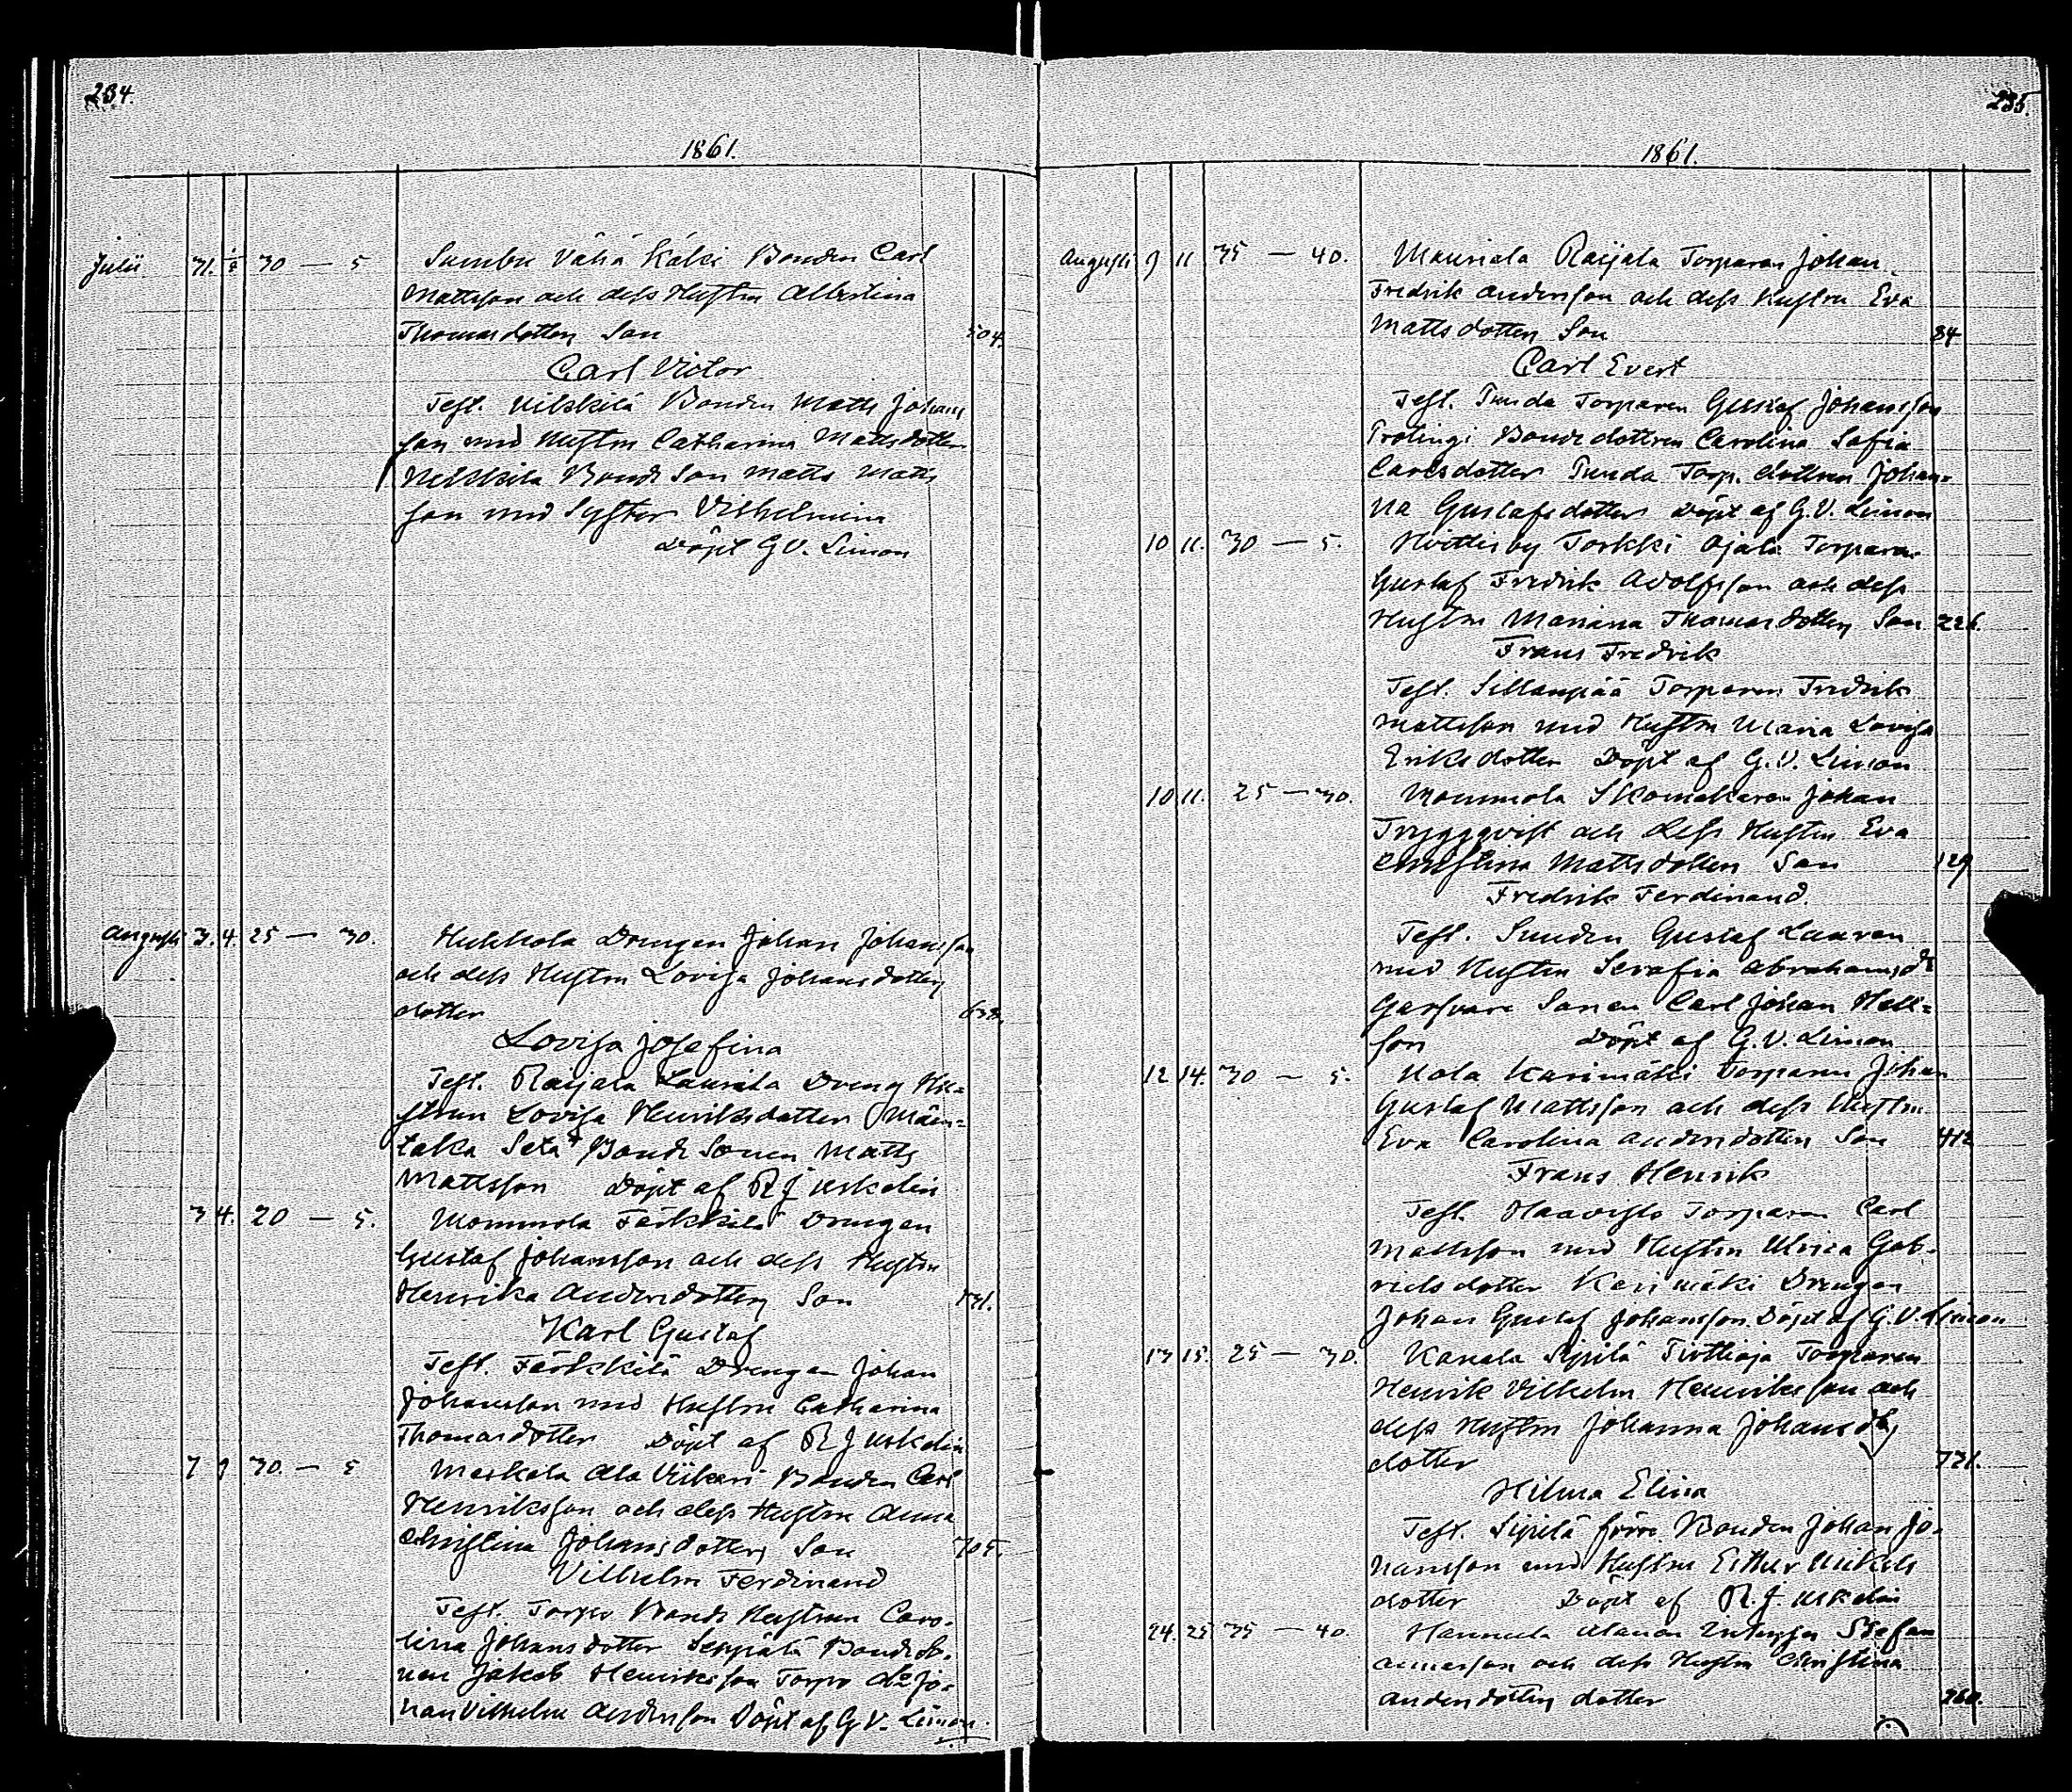 234.
1861.
Julii 31. 1/8 30 — 5 Sumbu Vähä Käki Bonden Carl
Mattsson och dess Hustru Albertina
Thomasdotters Son 504.
Carl Victor
Test. Bonden Matts Johans
son med Hustru Catharina Mattsdotter
Bonde Son Matts Matts
son med Syster Vilhelmina
Döpt G V. Limon
Augusti 3. 4. 25 — 30. Hukkola Drengen Johan Johansson
och dess Hustru Lovisa Johansdotters
dotter
Lovisa Josefina
Test. Raijala Laurila Dreng Hu=
strun Lovisa Henriksdotter Män=
taka Setä Bonde Sonen Matts
Mattsson Döpt af R J Uskelin
3 4. 20 — 5. Mommola Färkkilä Drengen
Gustaf Johansson och dess Hustru
Henrika Andersdotters Son
Karl Gustaf
Test. Färkkilä Drengen Johan
Johansson med Hustru Catharina
Thomasdotter Döpt af R J Uskelin
7 9 30. — 5 Maskala Ala Viikari Bonden Carl
Henriksson och dess Hustru Anna
Christina Johansdotters Son 705.
Vilhelm Ferdinand
Test. Torpo Bonde Hustrun Caro=
lina Johansdotter Seppälä Bondeso=
nen Jakob Henriksson Torpo do Jo=
han Vilhelm Andersson Döpt af G V. Limon.
235.
1861.
Augusti 9 11. 35 — 40. Mauriala Raijala Torparen Johan
Fredrik Andersson och dess Hustru Eva
Mattsdotters Son 84
Carl Evert
Test. Tunda Torparen Gustaf Johansson
Prolingi Bondedottren Carolina Sofia
Carlsdotter Tunda Torp. dottren Johan=
na Gustafsdotter Döpt af G. V. Limon
10 11. 30 — 5. Hvittisby Torkki Ojala Torparen
Gustaf Fredrik Adolfsson och dess
Hustru Mariana Thomasdotters Son 226.
Frans Fredrik
Test. Sillanpää Torparen Fredrik
Mattsson med Hustru Maria Lovisa
Eriksdotter Döpt af G. V. Limon
10 11. 25 — 30. Mommola Skomakaren Johan
Tryggqvist och dess Hustru Eva
Christina Mattsdotters Son 129
Fredrik Ferdinand.
Test. Sunden Gustaf Lauren
med Hustru Serafia Abrahamsdr
Garfvare Sonen Carl Johan Hell=
son Döpt af G. V. Limon
12 14. 30 — 5. Nola Karimäki Torparen Johan
Gustaf Mattsson och dess Hustru
Eva Carolina Andersdotters Son 412
Frans Henrik
Test. Haavisto Torparen Carl
Mattsson med Hustru Ulrica Gab=
rielsdotter Karimäki Drengen
Johan Gustaf Johansson Döpt af G. V. Limon
13 15. 25 — 30. Kanala Sipilä Torparen
Henrik Vilhelm Henriksson och
dess Hustru Johanna Johansdrs
dotter 721.
Hilma Elina
Test. Sipilä förre Bonden Johan Jo=
hansson med Hustru Esther Mikels
dotter Döpt af R. J. Uskelin
24. 25 35 — 40. Hannula Inhyses Stefan
och dess Hustru Christina
Andersdotters dotter 260.